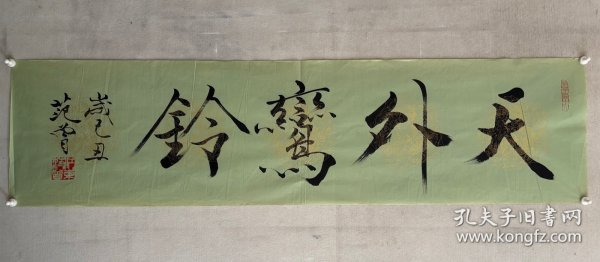 天外鸞鈴
歲己丑
范
孔夫子旧书网
www.kongfz.com